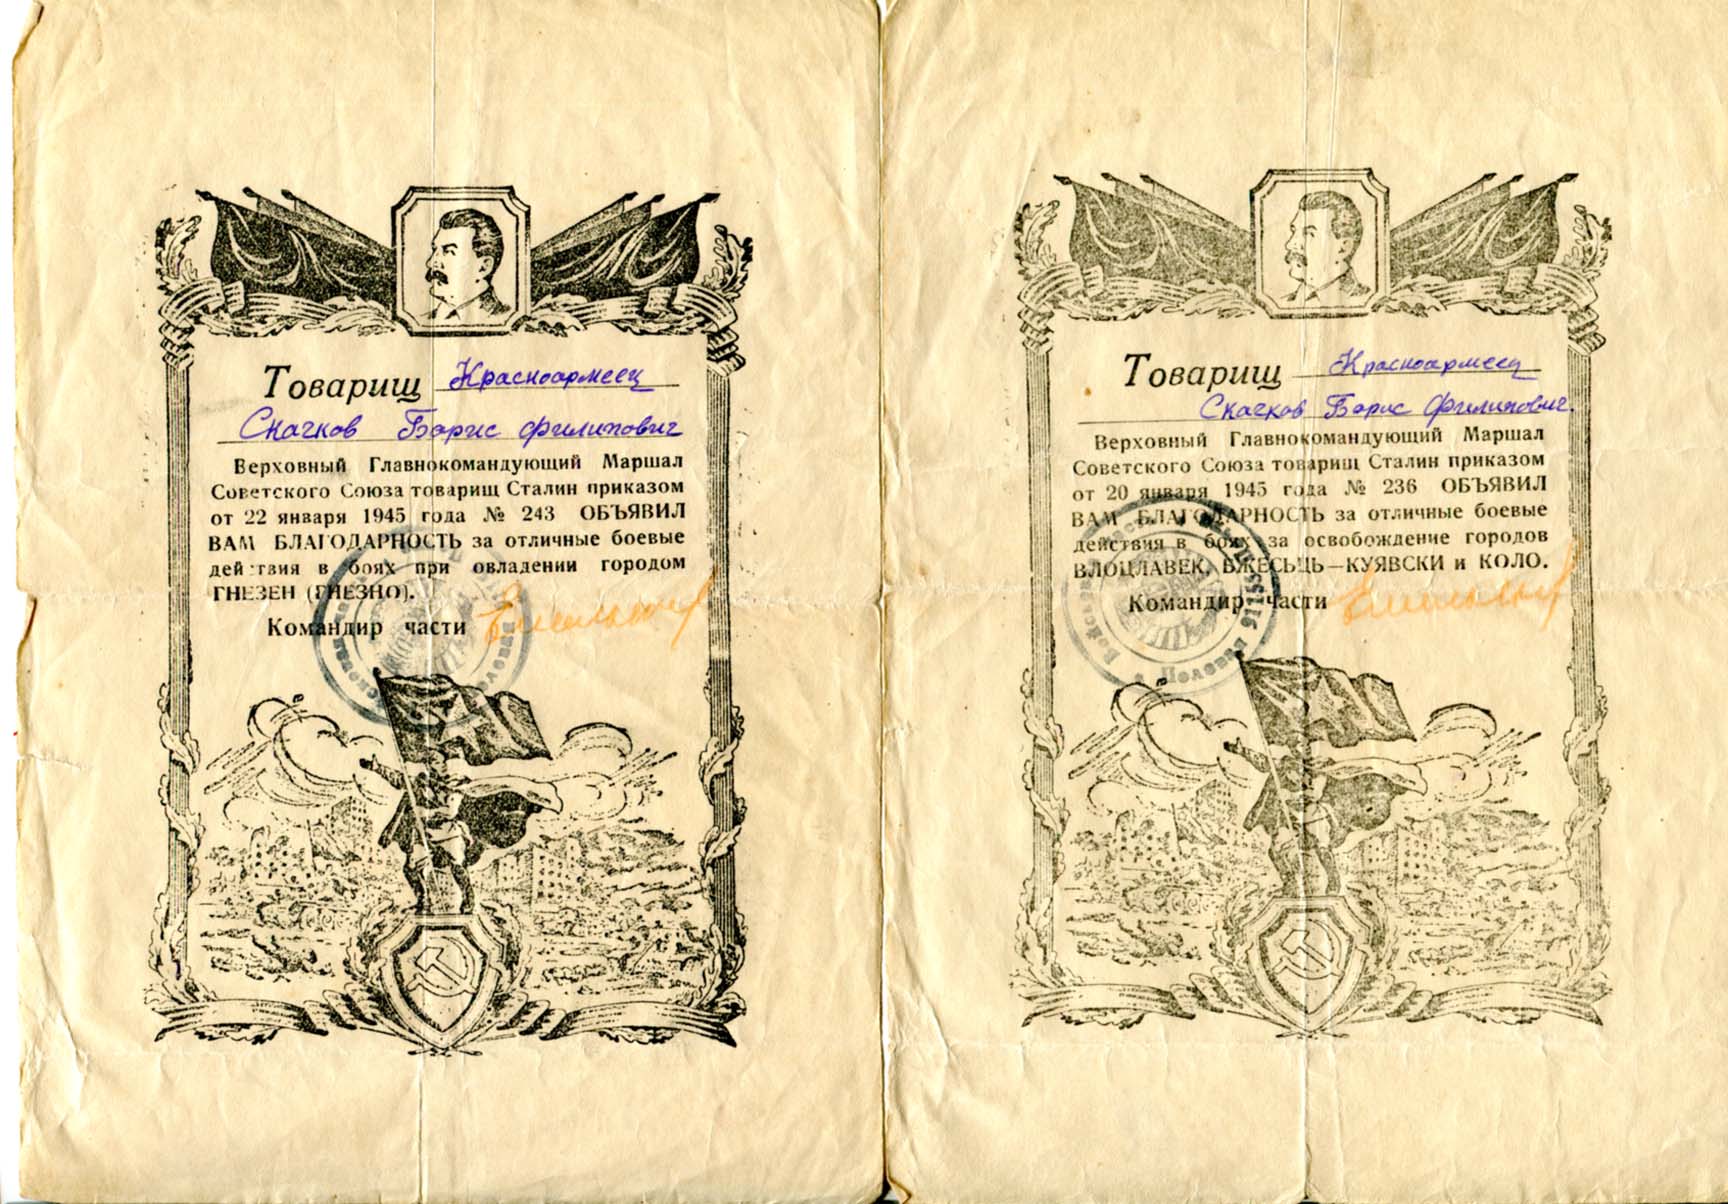 Товарищ Красноармеец
Скачков Борис Филипович
Верховный Главнокомандующий Маршал
Советского Союза товарищ Сталин приказом
от 22 января 1945 года № 243 ОБЪЯВИЛ
ВАМ БЛАГОДАРНОСТЬ за отличные боевые
действия в боях при овладении городом
ГНЕЗЕН (ГНЕЗНО).
Командир части
Полевая
Товарищ Красноармеец
Скачков Борис Филипович.
Верховный Главнокомандующий Маршал
Советского Союза товарищ Сталин приказом
от 20 января 1945 года № 236 ОБЪЯВИЛ
ВАМ БЛАГОДАРНОСТЬ за отличные боевые
действия в боях за освобождение городов
ВЛОЦЛАВЕК, БЖЕСЬЦЬ—КУЯВСКИ и КОЛО.
Командир части
Полевая